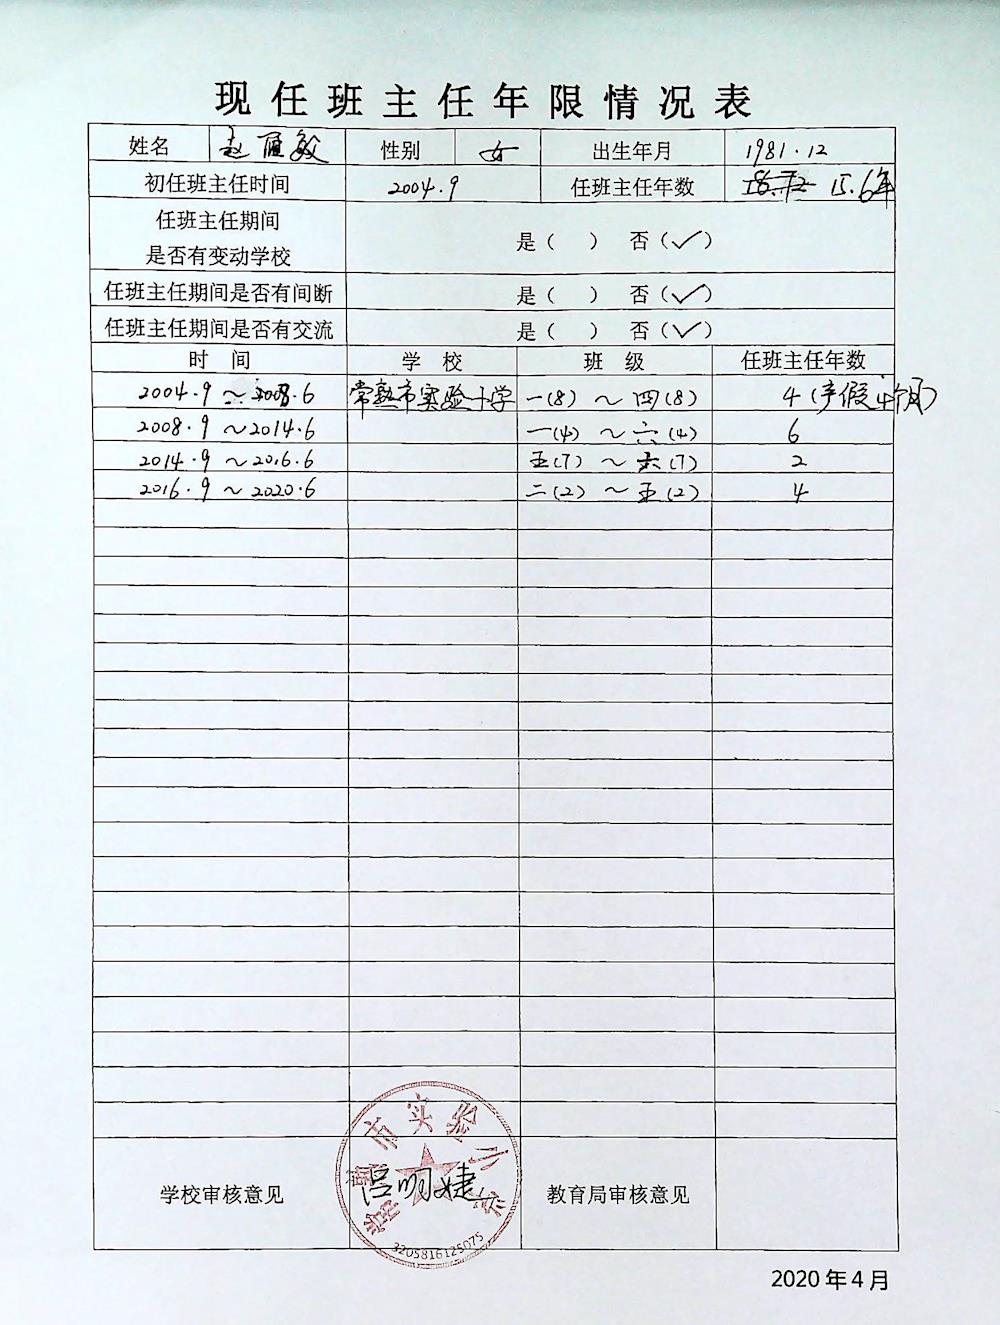 现任班主任年限情况表
姓名 赵 敏 性别 女 出生年月 1981.12
初任班主任时间 2004.9 任班主任年数 15.6年
任班主任期间
是否有变动学校 是（ ） 否（✓）
任班主任期间是否有间断 是（ ） 否（✓）
任班主任期间是否有交流 是（ ） 否（✓）
时 间 学 校 班 级 任班主任年数
2004.9 ～ 2008.6 常熟市实验小学 一(8) ～ 四(8) 4(产假4个月)
2008.9 ～2014.6 一(4) ～ 六(4) 6
2014.9 ～2016.6 五(7) ～ 六(7) 2
2016.9 ～2020.6 二(2) ～ 五(2) 4
常熟市实验小学
学校审核意见 吕明婕 教育局审核意见
3205816125075
2020年4月